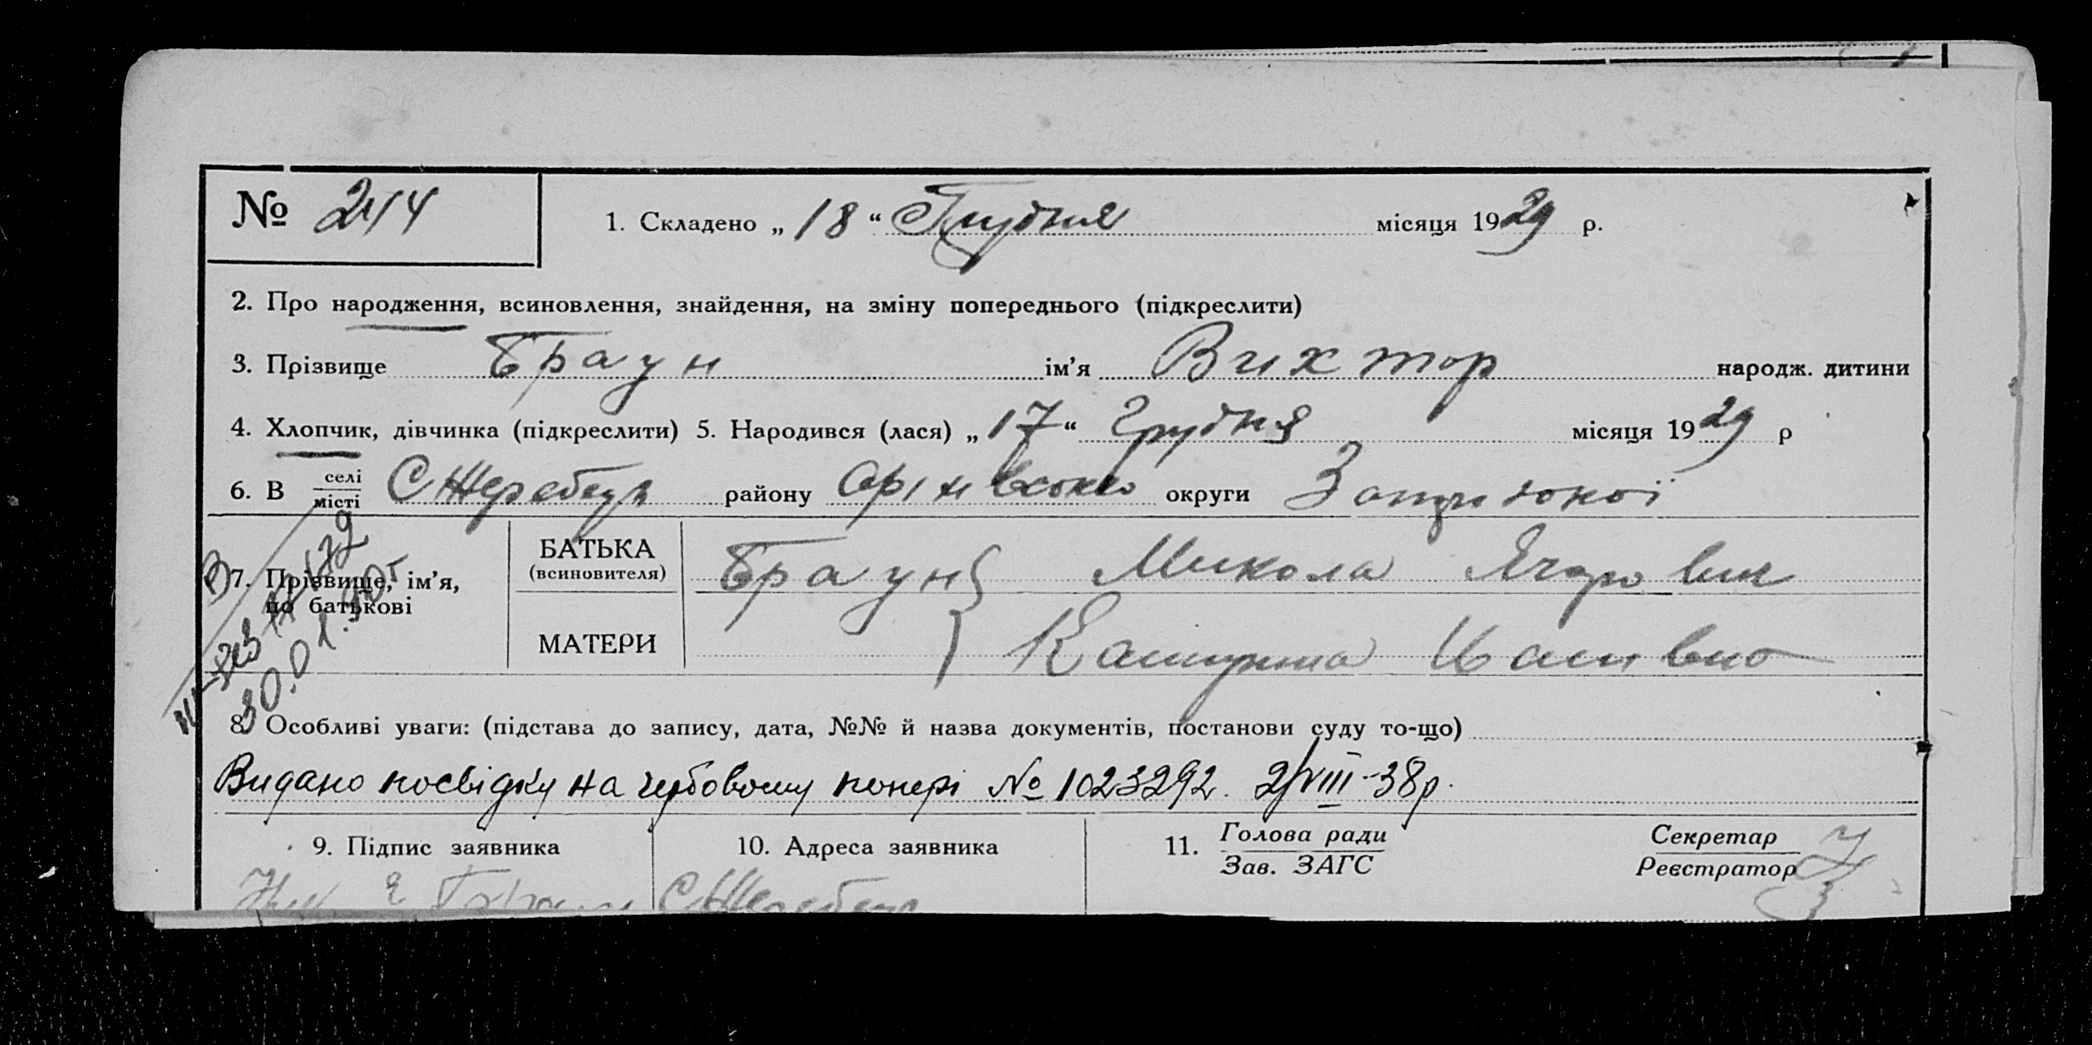 № 244 1. Складено „ 18 “ Грудня місяця 1929 р.
2. Про народження, всиновлення, знайдення, на зміну попереднього (підкреслити)
3. Прізвище Браун ім’я Виктор народж. дитини
4. Хлопчик, дівчинка (підкреслити) 5. Народився (лася) „ 17 “ Грудня місяця 1929 р
6. В селі місті С Жеребець району Оріхівсько округи Запорізької
7. Прізвище, ім’я, по батькові
БАТЬКА (всиновителя) Браун Микола Ягорович
МАТЕРИ
30.01.90г
8. Особливі уваги: (підстава до запису, дата, №№ й назва документів, постанови суду то-що)
Видано посвідку на гербовому папері № 1023292. 2/VIII-38р.
9. Підпис заявника 10. Адреса заявника 11. Голова ради Секретар
Зав. ЗАГС Реєстратор
С Жеребець